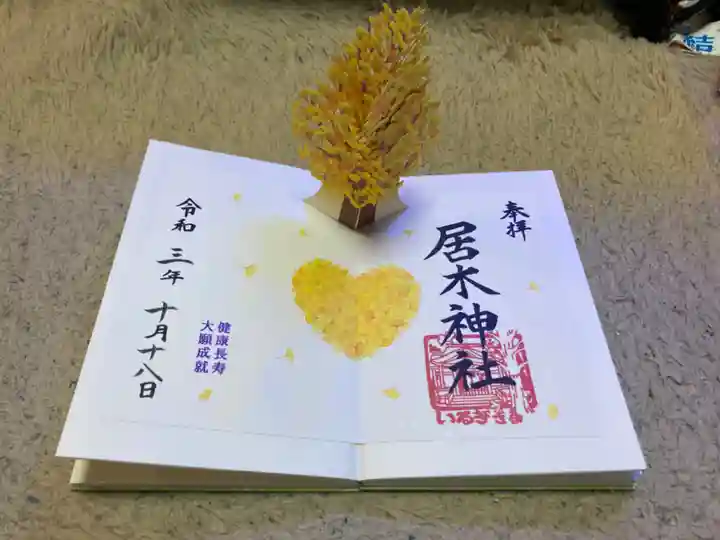 奉拝
居木神社
いるぎさま
健康長寿
大願成就
令和三年十月十八日
結